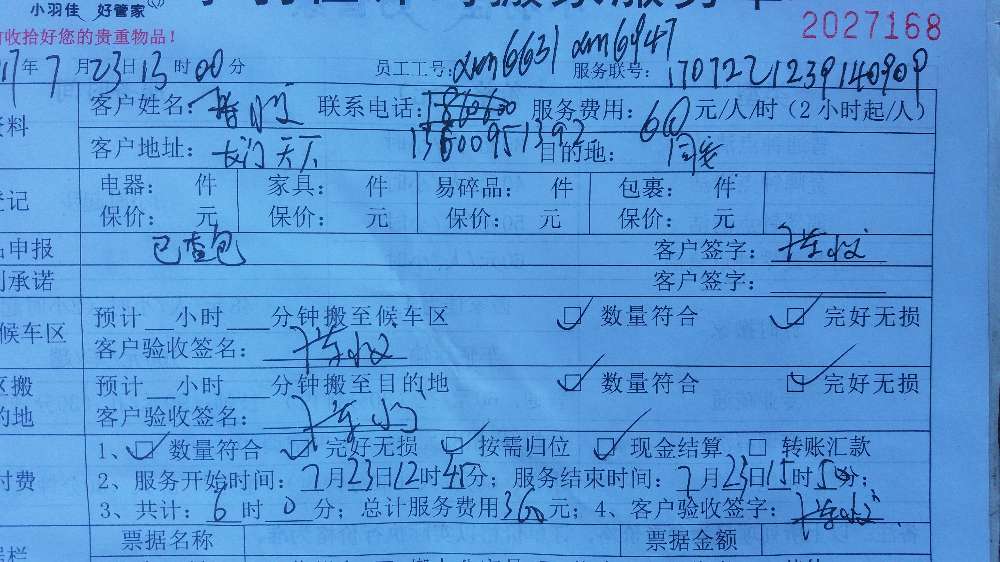 小羽佳 好管家
搬家服务单
2027168
收拾好您的贵重物品！
17年7月23日13时00分 员工工号：xm6631 xm6947 服务联号：1707221239140909
资料 客户姓名： 联系电话： 服务费用：60元/人/时（2小时起/人）
13600951392
客户地址： 天下 目的地：
登记 电器： 件 家具： 件 易碎品： 件 包裹： 件
保价： 元 保价： 元 保价： 元 保价： 元
申报 已查包 客户签字：
承诺 客户签字：
候车区 预计 小时 分钟搬至候车区 数量符合 完好无损
客户验收签名：
区搬 预计 小时 分钟搬至目的地 数量符合 完好无损
的地 客户验收签名：
1、 数量符合 完好无损 按需归位 现金结算 转账汇款
付费 2、服务开始时间：7月23日12时45分；服务结束时间：7月23日15时50分；
3、共计：6时0分；总计服务费用360元；4、客户验收签字：
票据名称 票据金额
据栏